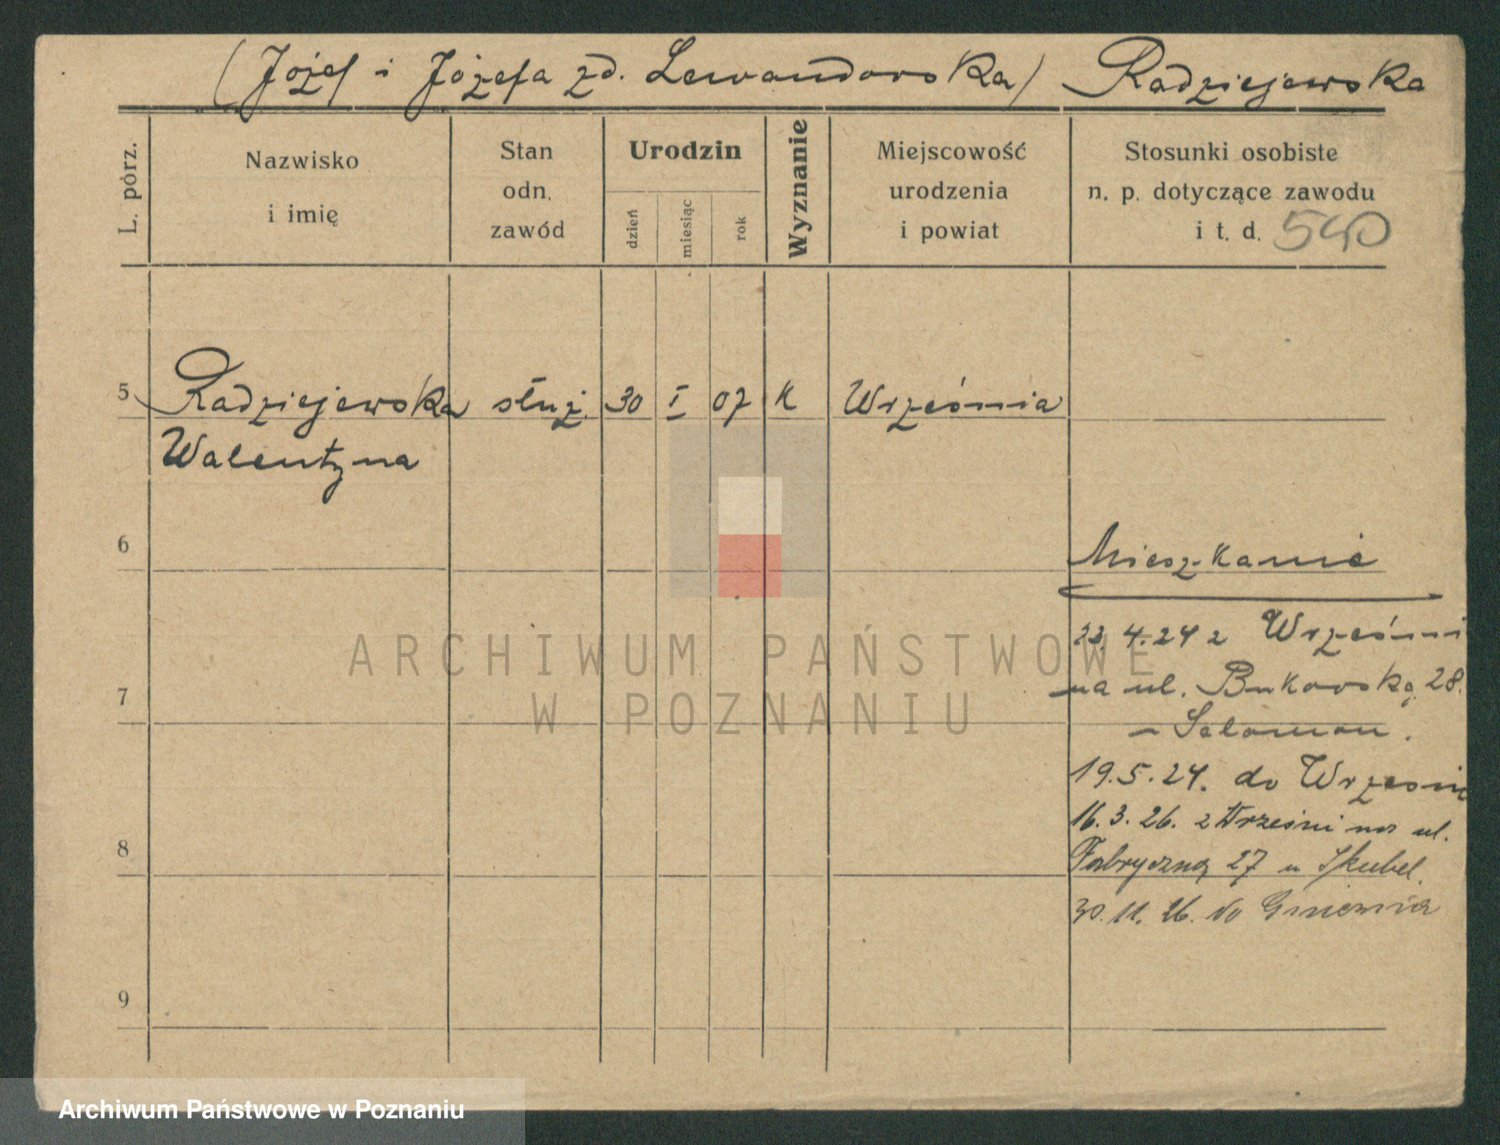 (Józef i Józefa zd. Lewandowska) Radziejewska
L. pórz.
Nazwisko
i imię
Stan
odn.
zawód
Urodzin
dzień
miesiąc
rok
Wyznanie
Miejscowość
urodzenia
i powiat
Stosunki osobiste
n. p. dotyczące zawodu
i t. d. 540
5 Radziejewska służ. 30 I 07 K Września
Walentyna
6
Mieszkanie
23.4.24 z Wrześni
na ul. Bukowską 28.
- Salomon.
7
19.5.24. do Wrześni
16.3.26. z Wrześni na ul.
8
Fabryczną 27 u Skubel.
30.11.26. do Gniezna
9
ARCHIWUM PAŃSTWOWE
W POZNANIU
Archiwum Państwowe w Poznaniu